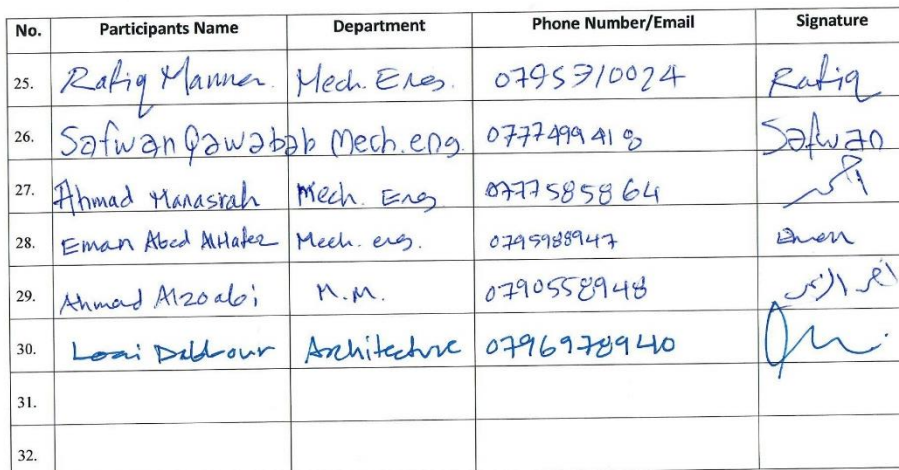 No. Participants Name Department Phone Number/Email Signature
25. Rafiq Manna Mech. Eng. 0795310024 Rafiq
26. Safwan Qawabah Mech. eng. 0777499418 Safwan
27. Ahmad Manasrah Mech. Eng 0777585864
28. Eman Abed AlHafez Mech. eng. 0795988947 Eman
29. Ahmad Alzoabi M.M. 0790558948
30. Loai Dabbour Architecture 0796978940
31.
32.